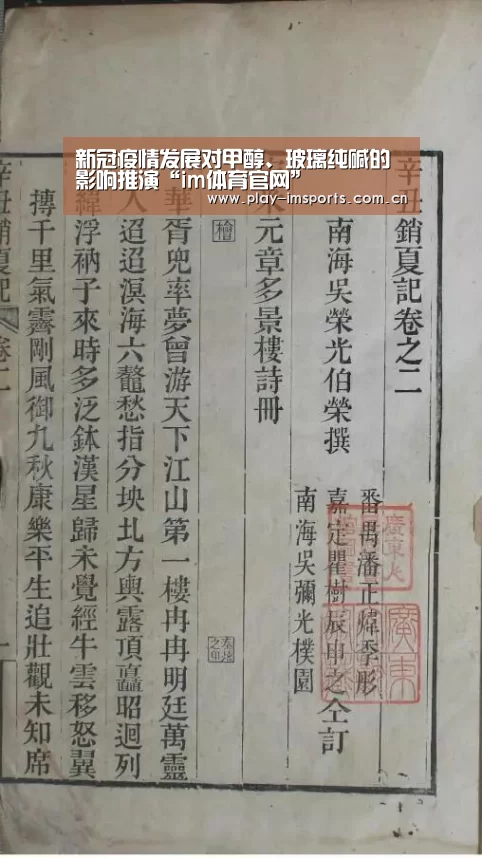 新冠疫情发展对甲醇、玻璃纯碱的
影响推演“im体育官网”
www.play-imsports.com.cn
辛丑銷夏記卷之二
南海吳榮光伯榮撰
番禺潘正煒季彤
嘉定瞿樹辰申之仝訂
南海吳彌光樸園
元章多景樓詩冊
檜
華胥兜率夢曾游天下江山第一樓冉冉明廷萬靈
入迢迢溟海六鼇愁指分坱圠方輿露頂矗昭迴列
緯浮衲子來時多泛鉢漢星歸未覺經牛雲移怒翼
摶千里氣霽剛風御九秋康樂平生追壯觀未知席
辛丑銷夏記
卷二
一
廣東